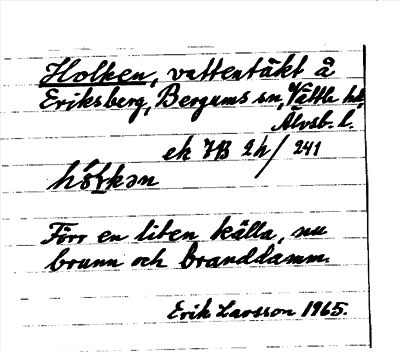 Holken, vattentäkt å
Eriksberg, Bergums sn, Vättle hd,
Älvsb. l.
ek 7B 2h/241
Förr en liten källa, nu
brunn och branddamm.
Erik Larsson 1965.